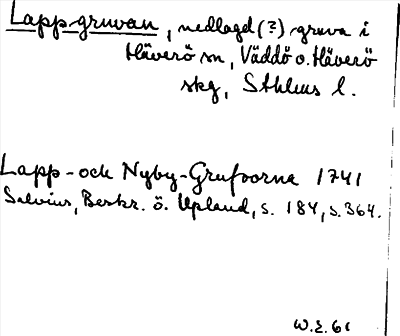 Lapp-gruvan, nedlagd (?) gruva i
Häverö sn, Väddö o. Häverö
skg, Sthlms l.
Lapp- och Nyby-Grufvorna 1741
Salvius, Beskr. ö. Upland, s. 184, s. 364.
W.E. 61